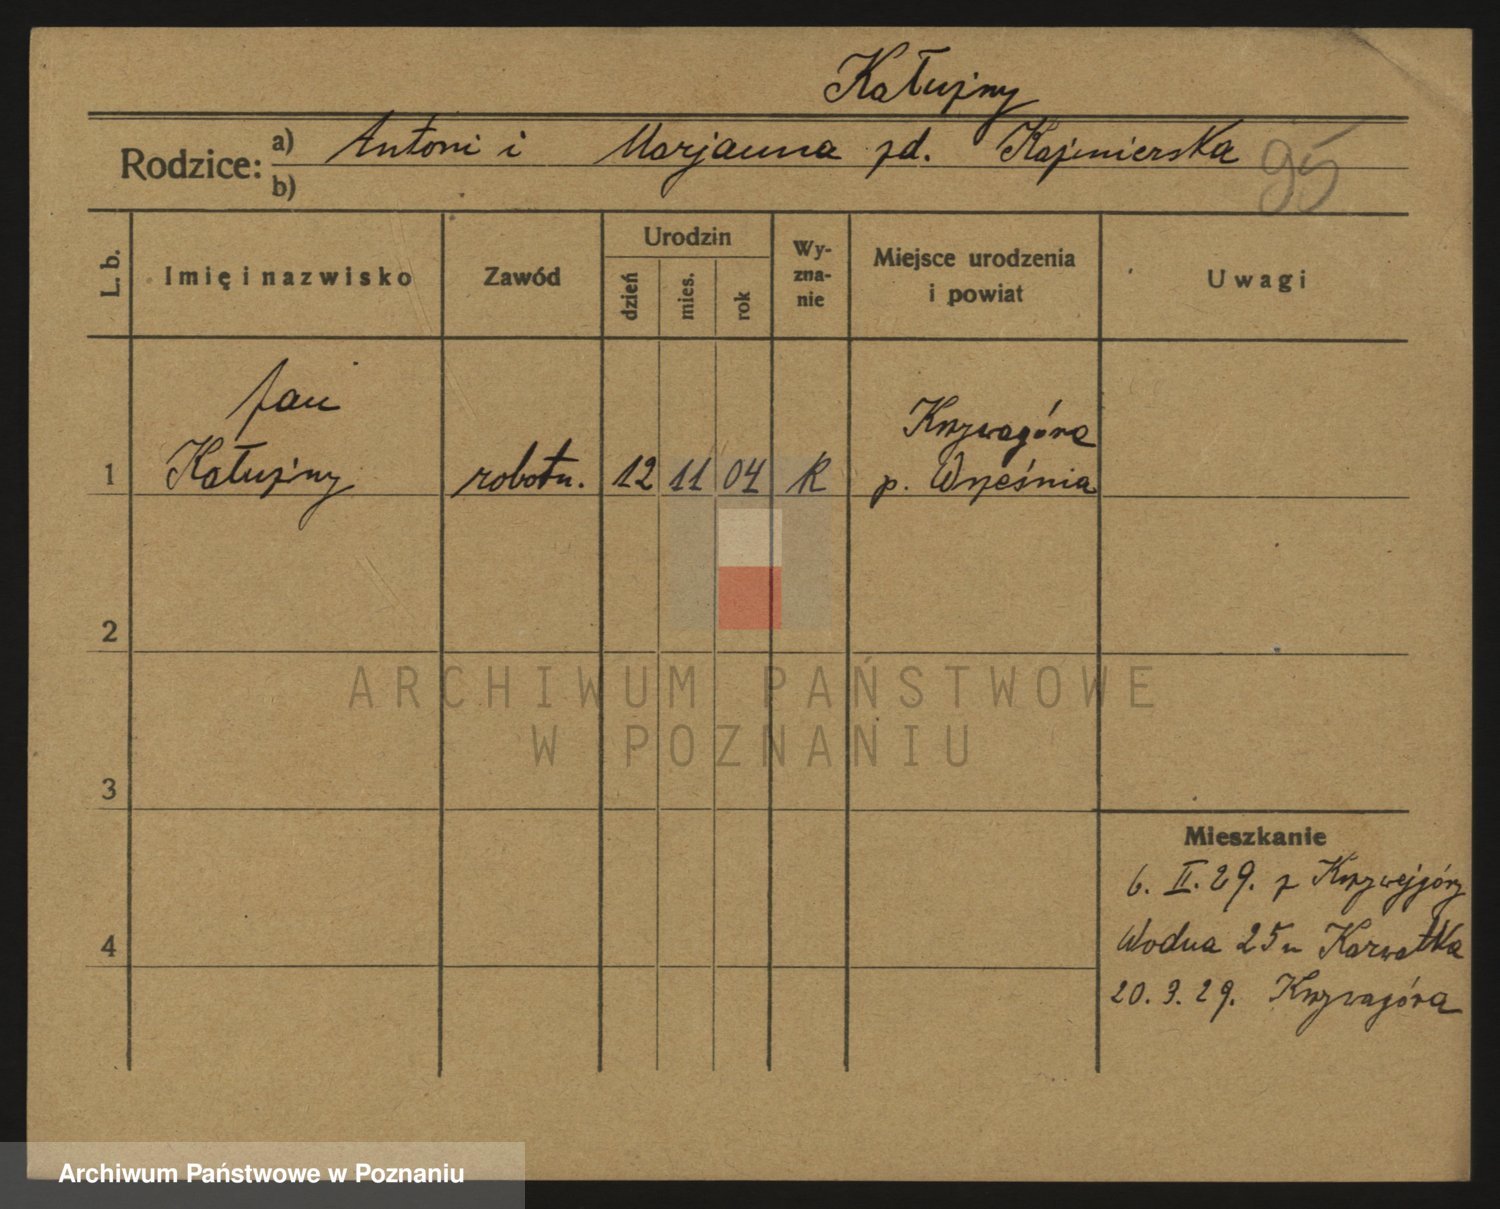 Kałużny
Rodzice: a) Antoni i Marjanna zd. Kaźmierska 95
b)
L. b.
Imię i nazwisko
Zawód
Urodzin
dzień
mies.
rok
Wy-
zna-
nie
Miejsce urodzenia
i powiat
Uwagi
Jan
Kałużny
robotn.
1
12 11 04 R
Krzywagóra
p. Września
2
3
4
Mieszkanie
6. II. 29. z Krzywejgóry
Wodna 25 u Karwatka
20. 3. 29. Krzywagóra
ARCHIWUM PAŃSTWOWE
W POZNANIU
Archiwum Państwowe w Poznaniu